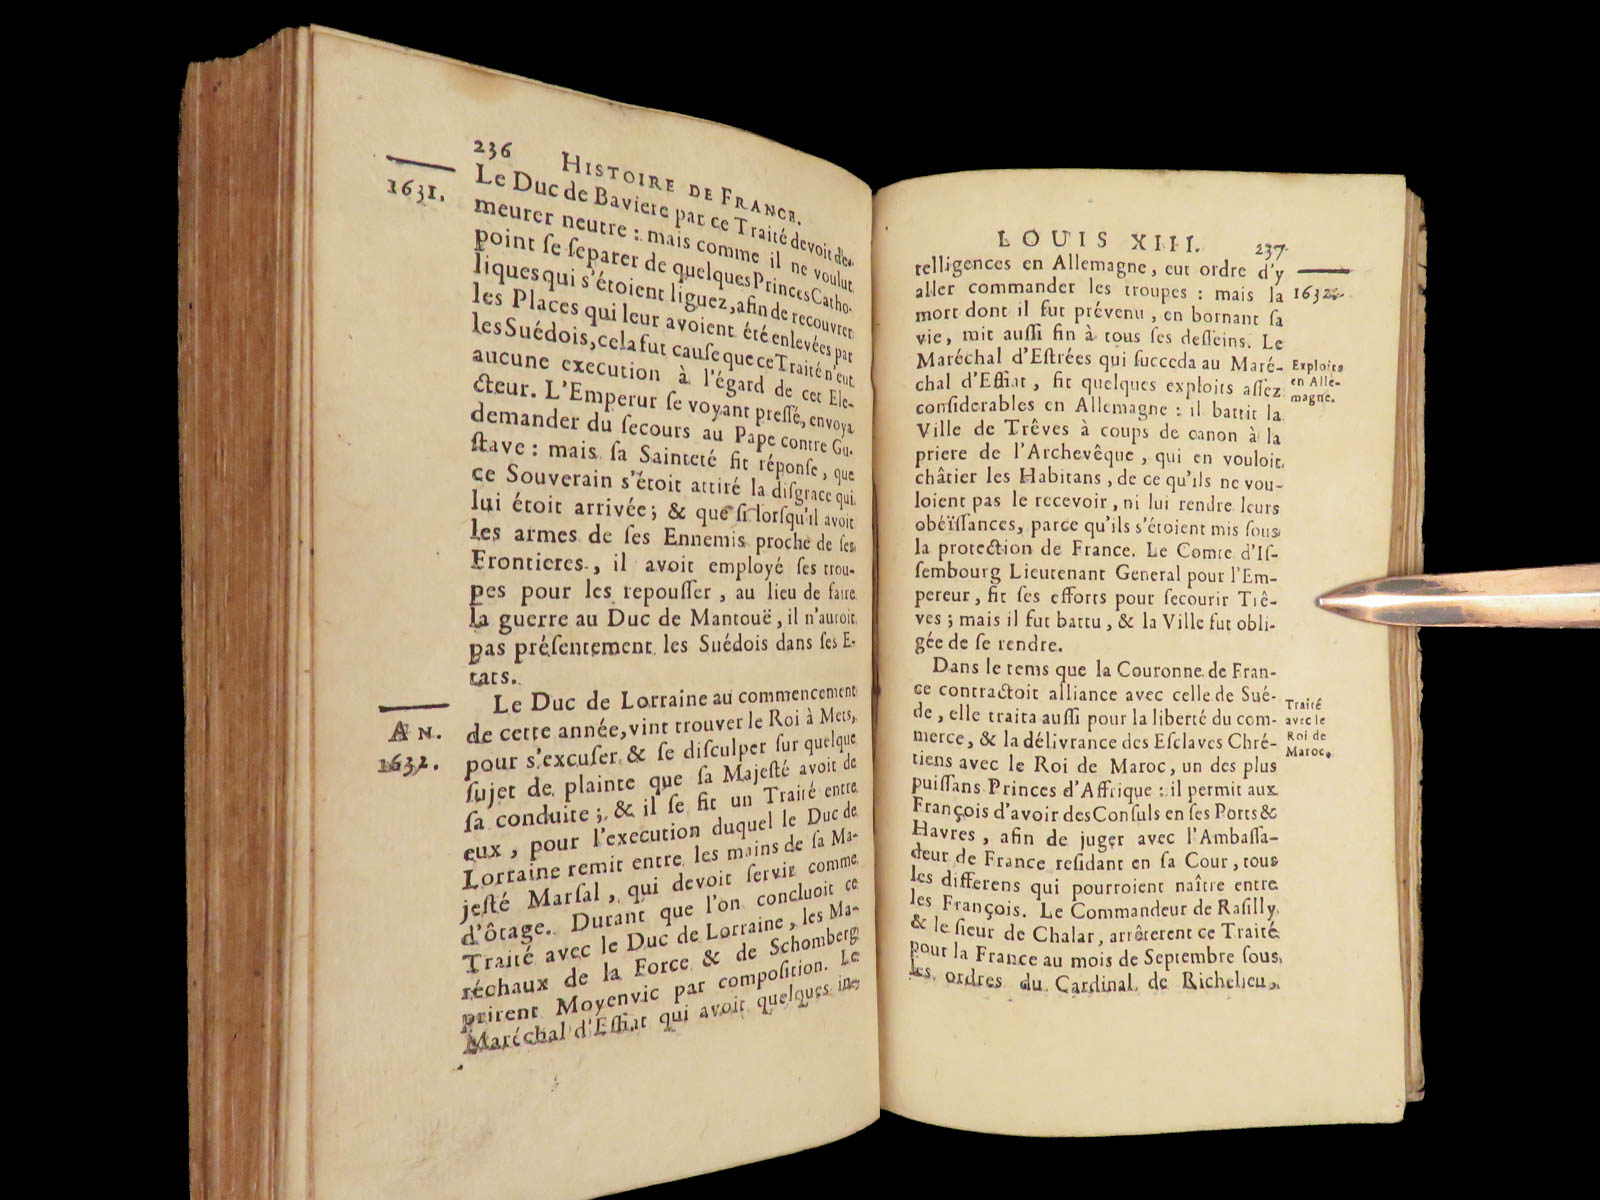 236 HISTOIRE DE FRANCE.
1631.
Le Duc de Baviere par ce Traité devoit de-
meurer neutre : mais comme il ne voulut
point ſe ſeparer de quelques Princes Catho-
liques qui s'étoient liguez, afin de recouvrer
les Places qui leur avoient été enlevées par
les Suédois, cela fut cauſe que ce Traité n'eut
aucune execution à l'égard de cet Ele-
cteur. L'Emperur ſe voyant preſſé, envoya
demander du ſecours au Pape contre Gu-
ſtave : mais ſa Sainteté fit réponſe, que
ce Souverain s'étoit attiré la diſgrace qui
lui étoit arrivée ; & que ſi lorſqu'il avoit
les armes de ſes Ennemis proche de ſes
Frontieres, il avoit employé ſes trou-
pes pour les repouſſer, au lieu de faire
la guerre au Duc de Mantouë, il n'auroit
pas préſentement les Suédois dans ſes E-
tats.
AN.
1632.
Le Duc de Lorraine au commencement
de cette année, vint trouver le Roi à Mets,
pour s'excuſer & ſe diſculper ſur quelque
ſujet de plainte que ſa Majeſté avoit de
ſa conduite ; & il ſe fit un Traité entre
eux, pour l'execution duquel le Duc de
Lorraine remit entre les mains de ſa Ma-
jeſté Marſal, qui devoit ſervir comme
d'ôtage. Durant que l'on concluoit ce
Traité avec le Duc de Lorraine, les Ma-
réchaux de la Force & de Schomberg
prirent Moyenvic par compoſition. Le
Maréchal d'Effiat qui avoit quelques in-
LOUIS XIII. 237
1632.
telligences en Allemagne, eut ordre d'y
aller commander les troupes : mais la
mort dont il fut prévenu, en bornant ſa
vie, mit auſſi fin à tous ſes deſſeins. Le
Maréchal d'Eſtrées qui ſucceda au Maré-
chal d'Effiat, fit quelques exploits aſſez
conſiderables en Allemagne : il battit la
Ville de Trêves à coups de canon à la
priere de l'Archevêque, qui en vouloit
châtier les Habitans, de ce qu'ils ne vou-
loient pas le recevoir, ni lui rendre leurs
obéïſſances, parce qu'ils s'étoient mis ſous
la protection de France. Le Comte d'Iſ-
ſembourg Lieutenant General pour l'Em-
pereur, fit ſes efforts pour ſecourir Trê-
ves ; mais il fut battu, & la Ville fut obli-
gée de ſe rendre.
Exploits
en Alle-
magne.
Dans le tems que la Couronne de Fran-
ce contractoit alliance avec celle de Sué-
de, elle traita auſſi pour la liberté du com-
merce, & la délivrance des Eſclaves Chré-
tiens avec le Roi de Maroc, un des plus
puiſſans Princes d'Affrique : il permit aux
François d'avoir des Conſuls en ſes Ports &
Havres, afin de juger avec l'Ambaſſa-
deur de France reſidant en ſa Cour, tous
les differens qui pourroient naître entre
les François. Le Commandeur de Raſilly,
& le ſieur de Chalar, arrêterent ce Traité
pour la France au mois de Septembre ſous
les ordres du Cardinal de Richelieu,
Traité
avec le
Roi de
Maroc.